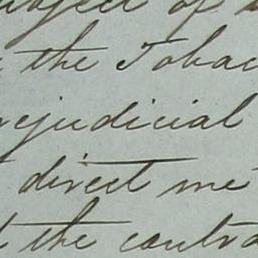 subject of
the Tobac
rejudicial
direct me
the contra